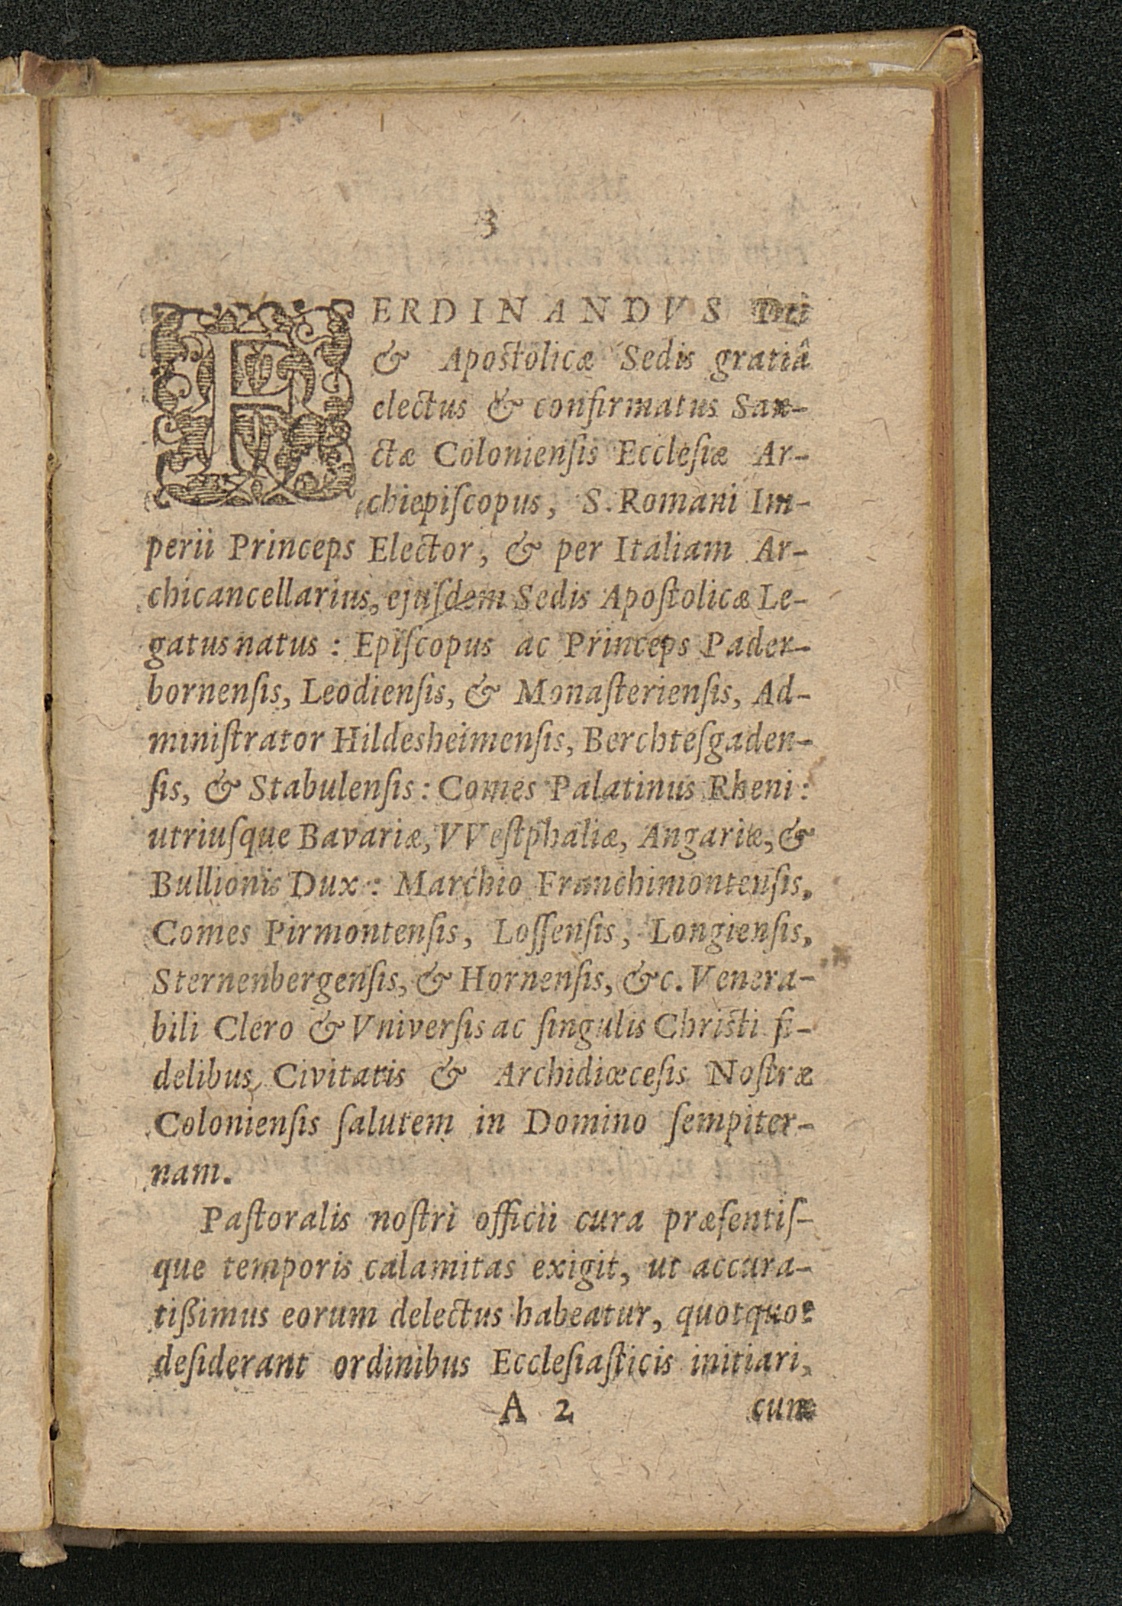 3
FERDINANDVS Dei
& Apostolicæ Sedis gratiâ
electus & confirmatus San-
ctæ Coloniensis Ecclesiæ Ar-
chiepiſcopus, S. Romani Im-
perii Princeps Elector, & per Italiam Ar-
chicancellarius, ejuſdem Sedis Apoſtolicæ Le-
gatus natus : Epiſcopus ac Princeps Pader-
bornenſis, Leodienſis, & Monaſterienſis, Ad-
miniſtrator Hildesheimenſis, Berchteſgaden-
ſis, & Stabulenſis : Comes Palatinus Rheni :
utriuſque Bavariæ, VVeſtphaliæ, Angariæ, &
Bullionis Dux : Marchio Franchimontenſis,
Comes Pirmontenſis, Loſſenſis, Longienſis,
Sternenbergenſis, & Hornenſis, &c. Venera-
bili Clero & Vniverſis ac ſingulis Chriſti fi-
delibus Civitatis & Archidiœceſis Noſtræ
Colonienſis ſalutem in Domino ſempiter-
nam.
Paſtoralis noſtri officii cura præſentiſ-
que temporis calamitas exigit, ut accura-
tißimus eorum delectus habeatur, quotquot
deſiderant ordinibus Eccleſiaſticis initiari,
A 2 cum